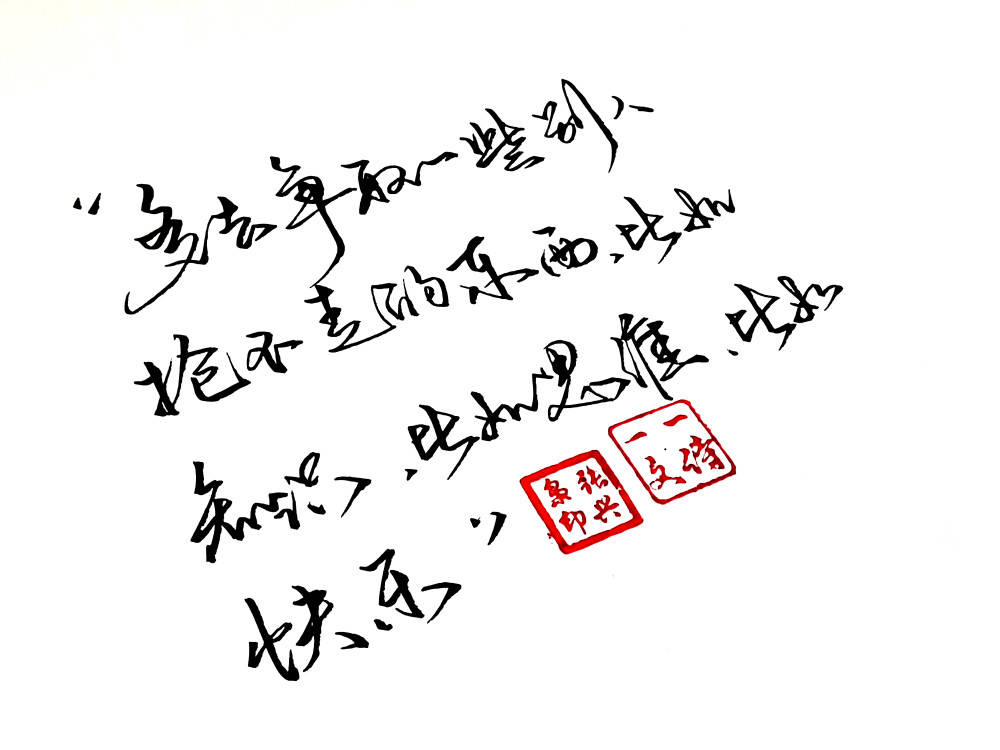 “多去争取一些别人
抢不走的东西、比如
知识、比如思维、比如
快乐”
一一
文诗
张兴
泉印